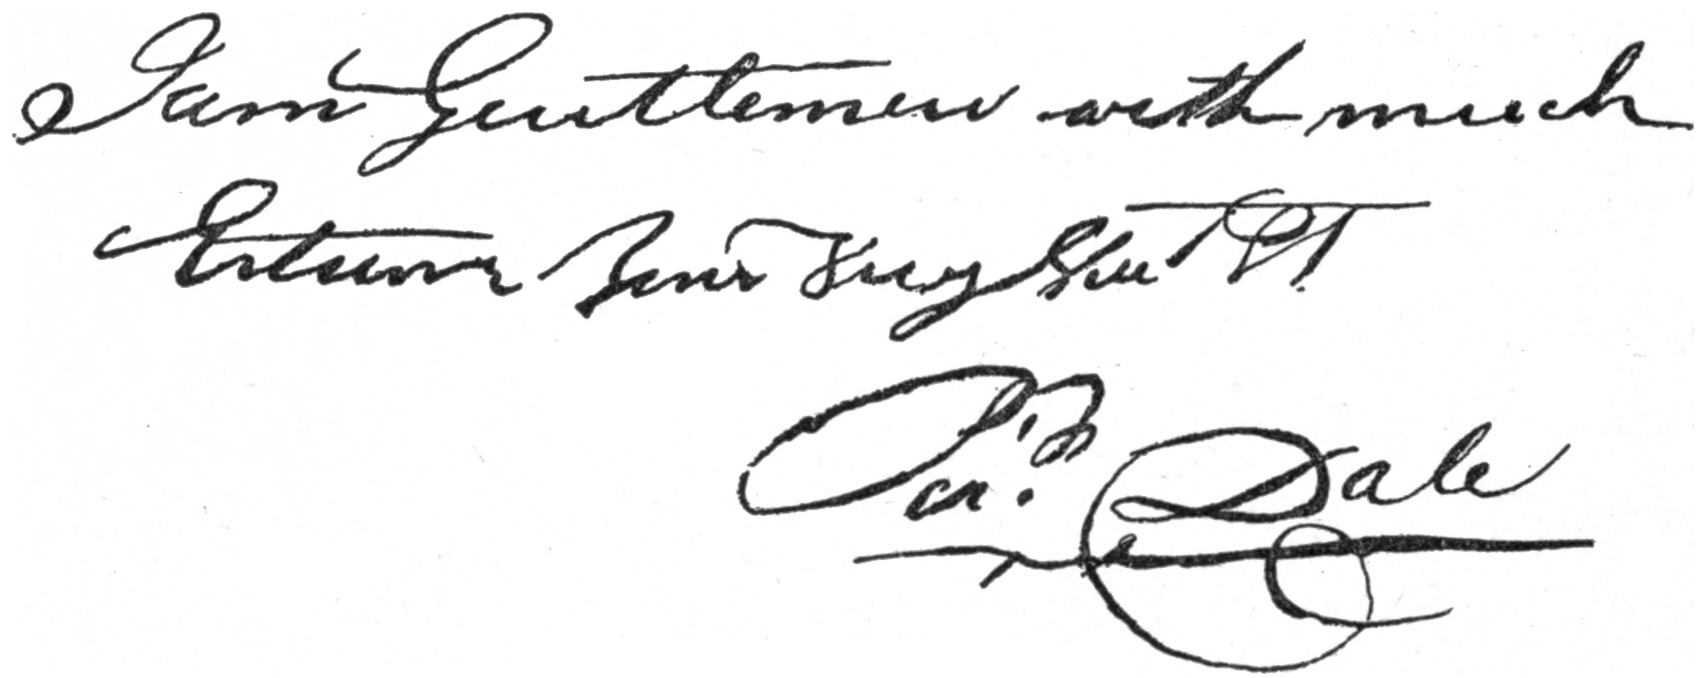 I am Gentlemen with much
Esteem Your Very
Dale